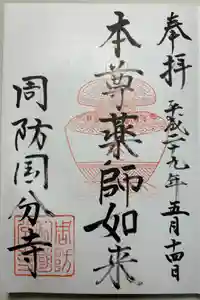 奉拝
平成二十九年五月十四日
本尊薬師如来
周防国分寺